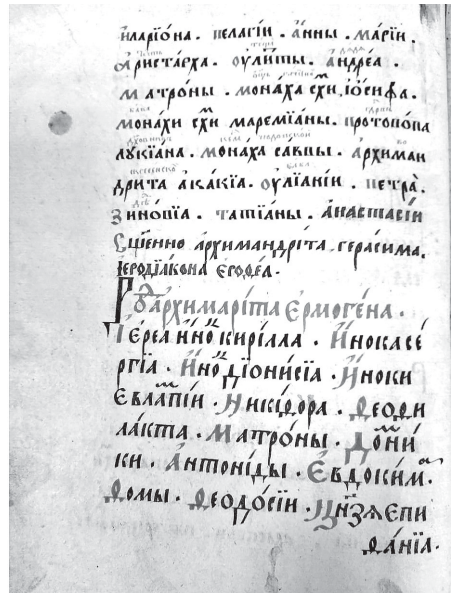 и҆ларїѡ́на . пелагі́и . а҆́нны . марі́и .
а҆риста́рха . ѹ҆ли́ты . а҆ндре́а .
матро́ны . мона́ха схи́ . іѡ́сифа .
мона́хи схи́ маремїа́ны . протопо́па
лꙋкїа́на . мона́ха саввы . а҆рхиман
дрита а҆ка́кїа . ѹ҆лїані́и . петра̀ .
зино́вїа . татїа́ны . а҆наⷭтасі́и
Сщ҃е́нно а҆рхимандрі́та герасима .
і҆еродїа́кона є҆роде́а .
Ро́дъ а҆рхимарі́та є҆рмоге́на .
І҆ере́а і҆н̾но кири́лла . И҆́нока се́
ргїа . И҆́но дїони́сїа . И҆́ноки
Є҆вла́мпїи . Ники́фора . Ѳеофи
ла́кта . Матро́ны . До́мни́
ки . А҆нтони́ды . Є҆вдоки́м .
Ѳомы̀ . Ѳеодо́сїи .
фа́нїа .